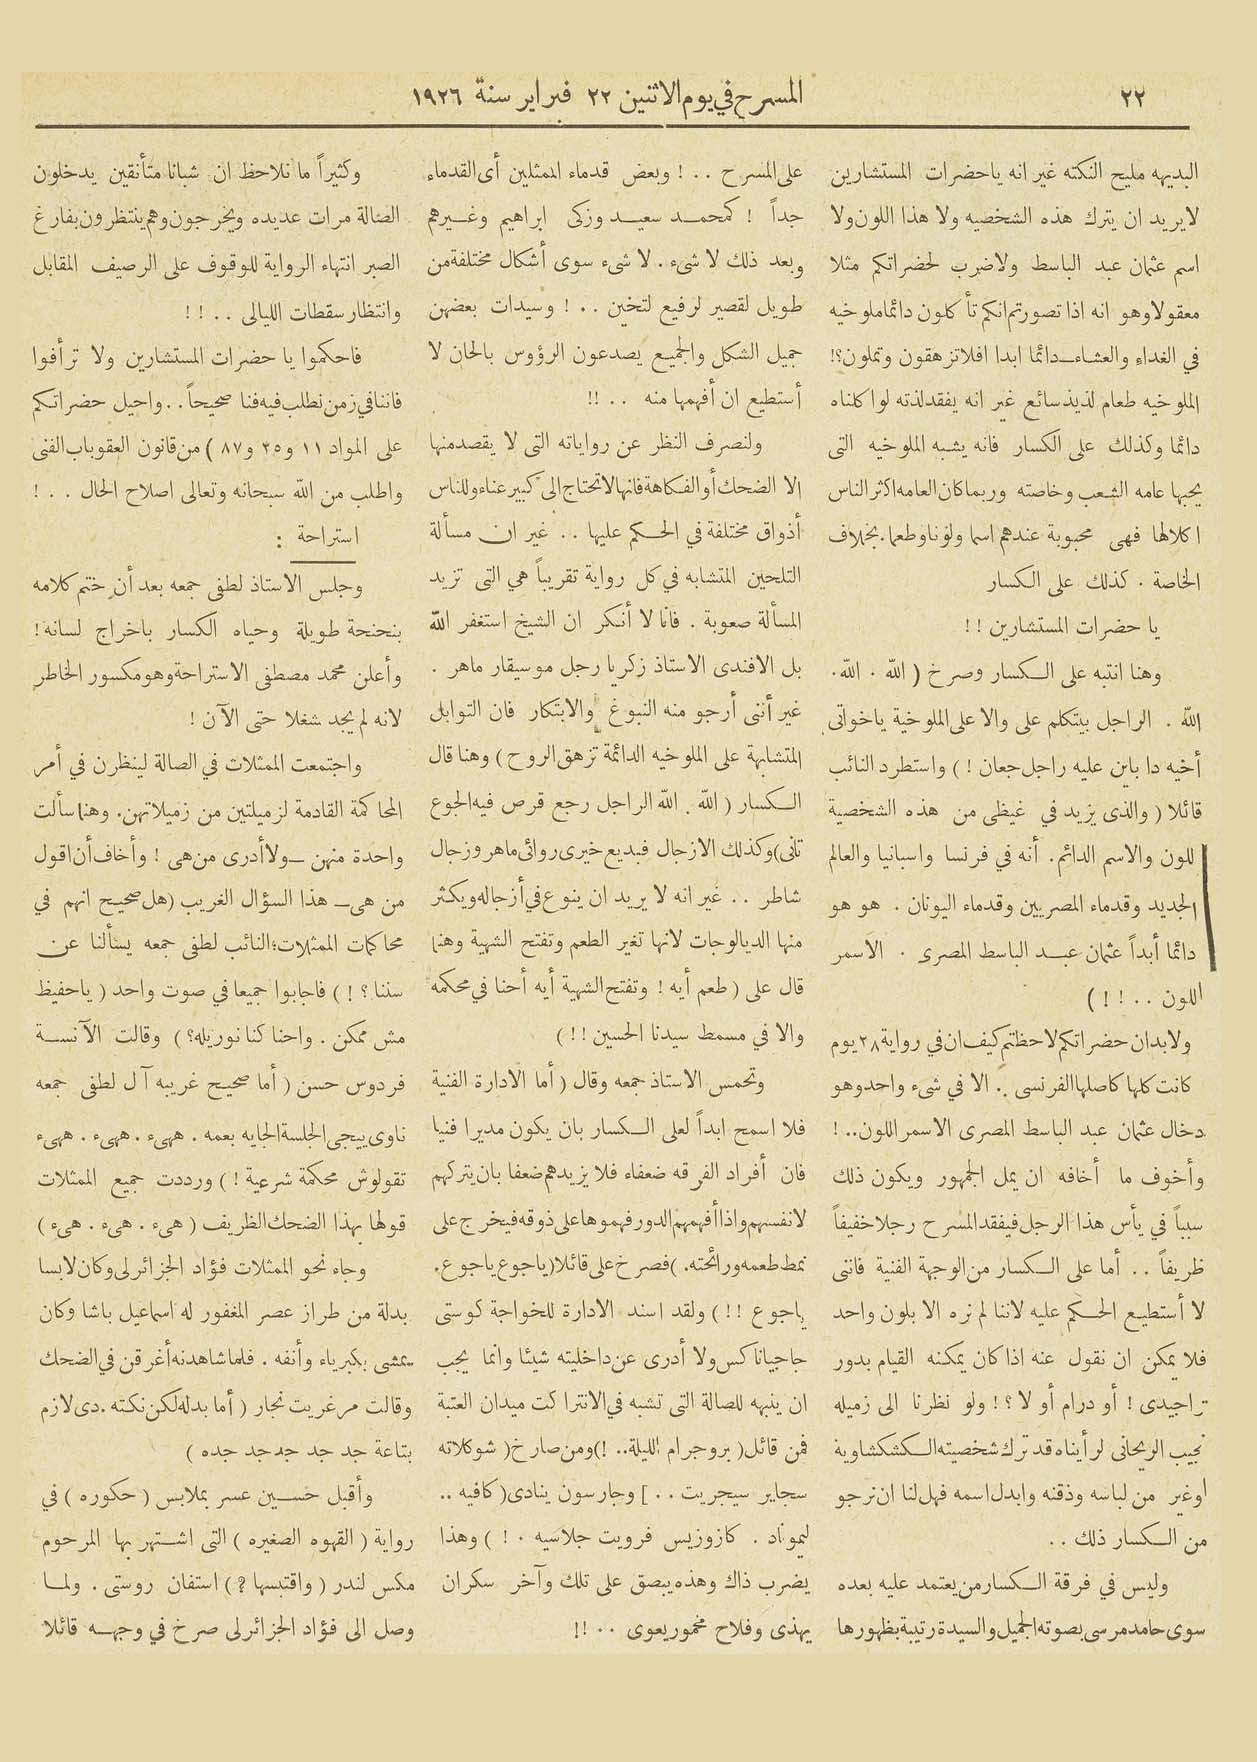 ٢٢
المسرح في يوم الاثنين ٢٢ فبراير سنة ١٩٢٦
البديهه مليح النكته غير انه ياحضرات المستشارين
لايريد ان يترك هذه الشخصيه ولا هذا اللون ولا
اسم عثمان عبد الباسط ولاضرب لحضراتكم مثلا
معقولا وهو انه اذا تصورتم انكم تأكلون دائما ملوخيه
في الغداء والعشاء ــ دائما ابدا افلاتزهقون وتملون؟!
الملوخيه طعام لذيذ سائغ غير انه يفقد لذته لو اكلناه
دائما وكذلك على الكسار فانه يشبه الملوخيه التى
يحبها عامه الشعب وخاصته وربما كان العامه اكثر الناس
اكلالها فهى محبوبة عندهم اسما ولونا وطعما. بخلاف
الخاصة . كذلك على الكسار
يا حضرات المستشارين ! !
وهنا انتبه على الكسار وصرخ ( الله . الله.
الله . الراجل بيتكلم على والا على الملوخية ياخواتى
أخيه دا باين عليه راجل جعان ! ) واستطرد النائب
قائلا ( والذى يزيد في غيظى من هذه الشخصية
للون والاسم الدائم. أنه في فرنسا واسبانيا والعالم
الجديد وقدماء المصريين وقدماء اليونان . هو هو
دائما أبداً عثمان عبد الباسط المصرى . الاسمر
اللون . . ! ! )
ولا بد ان حضراتكم لاحظتم كيف ان في رواية ٢٨ يوم
كانت كلها كاصلها الفرنسى . الا في شىء واحد وهو
دخال عثمان عبد الباسط المصرى الاسمر اللون.. !
وأخوف ما أخافه ان يمل الجمهور ويكون ذلك
سبباً في يأس هذا الرجل فيفقد المسرح رجلا خفيفاً
ظريفاً . . أما على الكسار من الوجهة الفنية فاننى
لا أستطيع الحكم عليه لاننا لم نره الا بلون واحد
فلا يمكن ان نقول عنه اذا كان يمكنه القيام بدور
تراجيدى ! أو درام أو لا ؟ ! ولو نظرنا الى زميله
نجيب الريحانى لرأيناه قد ترك شخصيته الكشكشاوية
اوغير من لباسه وذقنه وابدل اسمه فهل لنا ان نرجو
من الكسار ذلك . .
وليس في فرقة الكسار من يعتمد عليه بعده
سوى حامد مرسى بصوته الجميل والسيدة رتيبة بظهورها
على المسرح . . ! وبعض قدماء الممثلين أى القدماء
جداً ! كمحمد سعيد وزكى ابراهيم وغيرهم
وبعد ذلك لا شىء . لا شىء سوى أشكال مختلفة من
طويل لقصير لرفيع لتخين . . ! وسيدات بعضهن
جميل الشكل والجميع يصدعون الرؤوس بالحان لا
أستطيع ان أفهمها منه . . !!
ولنصرف النظر عن رواياته التى لا يقصد منها
الا الضحك أو الفكاهة فانها لا تحتاج الى كبير عناء وللناس
أذواق مختلفة في الحكم عليها . . غير ان مسألة
التلحين المتشابه في كل رواية تقريباً هي التى تزيد
المسألة صعوبة . فانا لا أنكر ان الشيخ استغفر الله
بل الافندى الاستاذ زكريا رجل موسيقار ماهر .
غير أننى أرجو منه النبوغ والابتكار فان التوابل
المتشابهة على الملوخيه الدائمة تزهق الروح ) وهنا قال
الكسار ( الله . الله الراجل رجع قرص فيه الجوع
تانى ) وكذلك الازجال فبديع خيرى روائى ماهر وزجال
شاطر . . غير انه لا يريد ان ينوع في أزجاله ويكثر
منها الديالوجات لانها تغير الطعم وتفتح الشهية وهنا
قال على ( طعم أيه ! وتفتح الشهية أيه أحنا في محكمه
والا في مسمط سيدنا الحسين ! ! )
وتحمس الاستاذ جمعه وقال ( أما الادارة الفنية
فلا اسمح ابداً لعلى الكسار بان يكون مديرا فنيا
فان أفراد الفرقه ضعفاء فلا يزيدهم ضعفا بان يتركهم
لانفسهم واذا أفهمهم الدور فهموها على ذوقه فيخرج على
نمط طعمه ورائحته. ) فصرخ على قائلا ( ياجوع ياجوع.
ياجوع !! ) ولقد اسند الادارة للخواجة كوستى
جاجياناكس ولا أدرى عن داخليته شيئا وانما يجب
ان ينبهه للصالة التى تشبه في الانتراكت ميدان العتبة
فمن قائل ( بروجرام الليلة.. !) ومن صارخ ( شوكلاته
سجاير سيجريت . . ] وجارسون ينادى ( كافيه . .
ليموناد . كازوزيس فرويت جلاسيه . ! ) وهذا
يضرب ذاك وهذه يبصق على تلك وآخر سكران
يهذى وفلاح مخمور يعوى . . !!
وكثيراً ما نلاحظ ان شبانا متأنقين يدخلون
الصالة مرات عديده ويخرجون وهم ينتظرون بفارغ
الصبر انتهاء الرواية للوقوف على الرصيف المقابل
وانتظار سقطات الليالى . . ! !
فاحكموا يا حضرات المستشارين ولا ترأفوا
فاننا في زمن نطلب فيه فنا صحيحاً . . واحيل حضراتكم
على المواد ١١ و ٢٥ و ٨٧ ) من قانون العقوباب الفنى
واطلب من الله سبحانه وتعالى اصلاح الحال . . . !
استراحة :
وجلس الاستاذ لطفى جمعه بعد أن ختم كلامه
بنحنحة طويلة وحياه الكسار باخراج لسانه !
وأعلن محمد مصطفى الاستراحة وهو مكسور الخاطر
لانه لم يجد شغلا حتى الآن !
واجتمعت الممثلات في الصالة لينظرن في أمر
المحاكمة القادمة لزميلتين من زميلاتهن. وهنا سألت
واحدة منهن ــ ولا أدرى من هى ! وأخاف أن اقول
من هى ــ هذا السؤال الغريب (هل صحيح انهم في
محاكمات الممثلات؛ النائب لطفى جمعه يسألنا عن
سننا ؟ ! ) فاجابوا جميعا في صوت واحد ( ياحفيظ
مش ممكن . واحنا كنا نوريله؟ ) وقالت الآنسة
فردوس حسن ( أما صحيح غريبه آل لطفى جمعه
ناوى ييجى الجلسة الجايه بعمه . ههىء . ههىء . ههىء
تقولوش محكمة شرعية ! ) ورددت جميع الممثلات
قولها بهذا الضحك الظريف ( هىء . هىء . هىء )
وجاء نحو الممثلات فؤاد الجزائرلى وكان لابسا
بدلة من طراز عصر المغفور له اسماعيل باشا وكان
يمشى بكبرياء وأنفه . فلما شاهدنه أغرقن في الضحك
وقالت مرغريت نجار ( أما بدله لكن نكته . دى لازم
بتاعة جد جد جد جده )
وأقبل حسين عسر بملابس ( حكوره ) في
رواية ( القهوه الصغيره ) التى اشتهر بها المرحوم
مكس لندر ( واقتبسها ? ) استفان روستى . ولما
وصل الى فؤاد الجزائرلى صرخ في وجهه قائلا